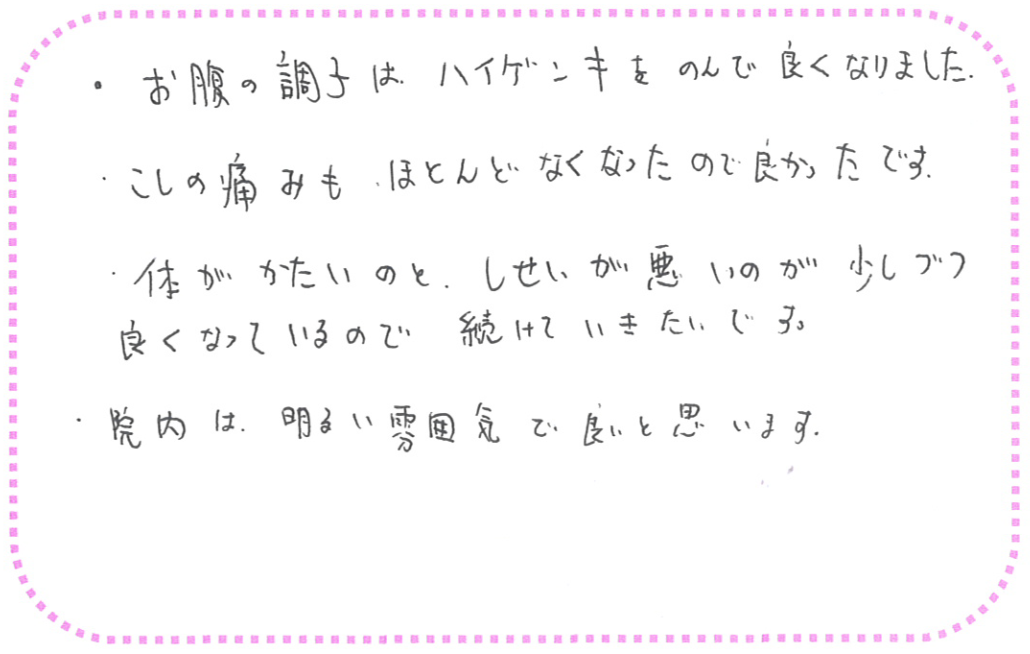 ・お腹の調子は ハイゲンキを のんで 良くなりました.
・こしの痛みも、ほとんどなくなったので良かったです.
・体が かたいのと、しせいが悪いのが 少しづつ
良くなっているので 続けていきたいです。
・院内は、明るい雰囲気で良いと思います.